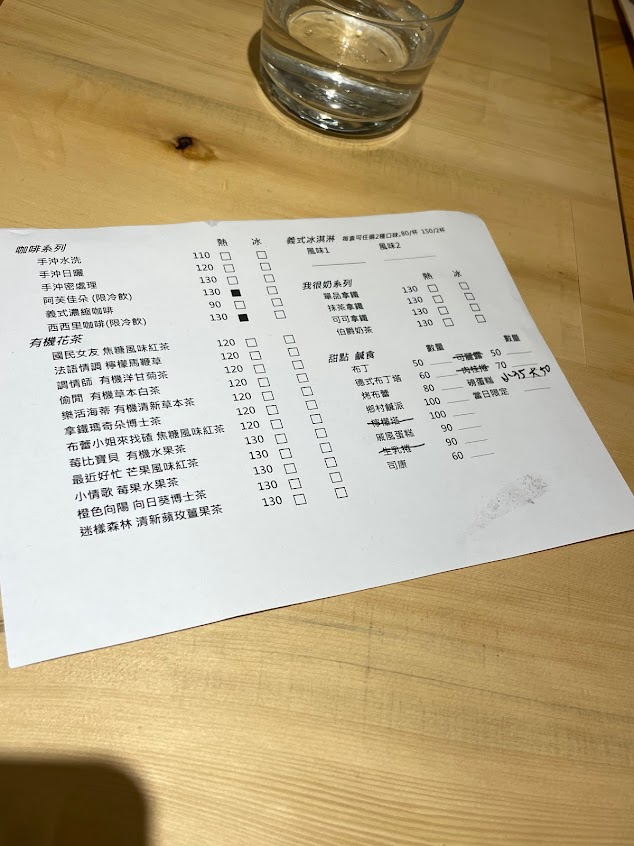 咖啡系列 熱 冰
手沖水洗 110
手沖日曬 120
手沖密處理 130
阿芙佳朵 (限冷飲) 130
義式濃縮咖啡 90
西西里咖啡(限冷飲) 130
有機花茶
國民女友 焦糖風味紅茶 120
法語情調 檸檬馬鞭草 120
調情師 有機洋甘菊茶 120
偷閒 有機草本白茶 120
樂活海蒂 有機清新草本茶 120
拿鐵瑪奇朵博士茶 120
布蕾小姐來找碴 焦糖風味紅茶 120
莓比寶貝 有機水果茶 130
最近好忙 芒果風味紅茶 130
小情歌 莓果水果茶 130
橙色向陽 向日葵博士茶 130
迷樣森林 清新蘋玫薑果茶 130
義式冰淇淋 每盒可任選2種口味,80/杯 150/2杯
風味1 風味2
我很奶系列 熱 冰
單品拿鐵 130
抹茶拿鐵 130
可可拿鐵 130
伯爵奶茶 130
甜點 鹹食 數量 數量
布丁 50 可麗露 50
德式布丁塔 60 肉桂捲 70
烤布蕾 80 磅蛋糕
鄉村鹹派 100 當日限定
檸檬塔 100
戚風蛋糕 90
生乳捲 90
司康 60